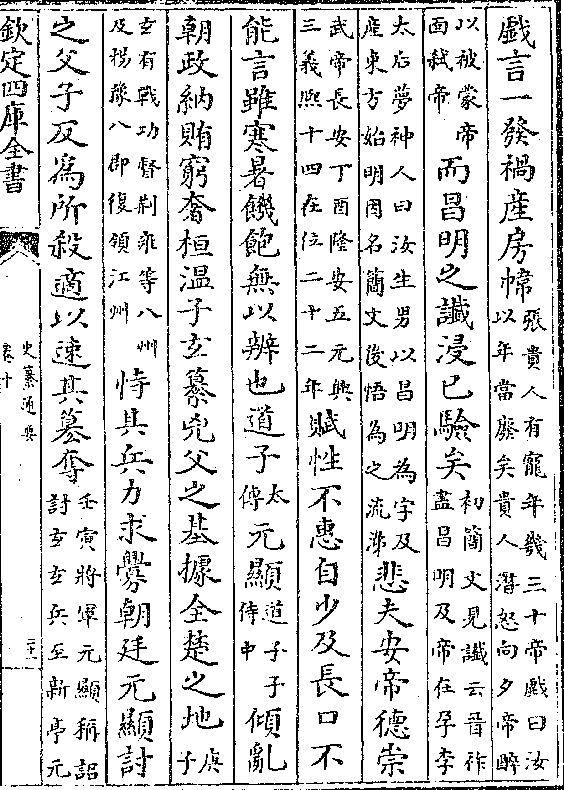 戯言一發禍産房幃張貴人有寵年幾三十帝戲曰汝以年當廢矣貴人潛怒向夕帝醉
以被蒙帝面弑帝而昌明之讖浸已驗矣初簡文見讖云晉祚盡昌明及帝在孕李
太后夢神人曰汝生男以昌明為字及産東方始明因名簡文後悟為之流涕悲夫安帝德崇
武帝長安丁酉隆安五元興三義熙十四在位二十二年賦性不惠自少及長口不
能言雖寒暑饑飽無以辨也道子太傅元顯道子子侍中傾亂
朝政納賄窮奢桓温子玄纂兇父之基據全楚之地庚子
玄有戰功督荆雍等八州及揚豫八郡復領江州恃其兵力求釁朝廷元顯討
之父子反為所殺適以速其簒奪壬寅將軍元顯稱詔討玄玄兵至新亭元
欽定四庫全書
史纂通要
卷十